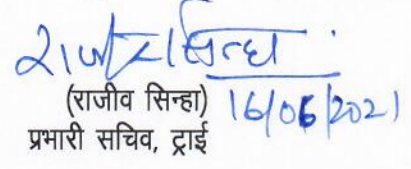 राजीव सिन्हा
(राजीव सिन्हा) 16/06/2021
प्रभारी सचिव, ट्राई